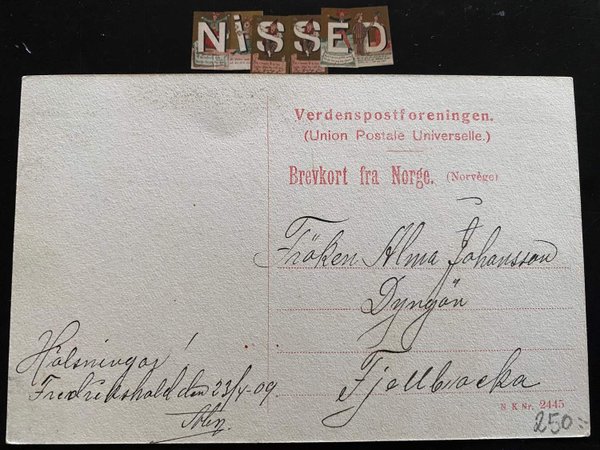 NiSSED
Verdenspostforeningen.
(Union Postale Universelle.)
Brevkort fra Norge. (Norvège)
Fröken Alma Johansson
Dyngön
Fjellbacka
Hälsningar!
Fredrikshald den 23/4-09
N K Nr. 2445
250:-